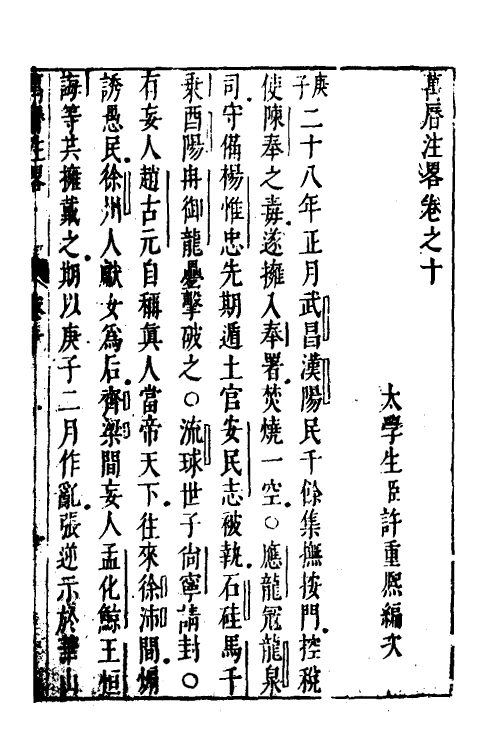 萬曆注畧卷之十
太學生臣許重熙編次
庚子二十八年正月武昌漢陽民千餘集撫按門控稅
使陳奉之毒遂擁入奉署焚燒一空○應龍冦龍泉
司守備楊惟忠先期遁土官安民志被執石砫馬千
乘酉陽冉御龍疊擊破之○流球世子尙寧請封○
有妄人趙古元自稱眞人當帝天下往來徐沛間煽
誘愚民徐州人獻女爲后齊梁間妄人孟化鯨王恒
誨等共擁戴之期以庚子二月作亂張逆示於華山